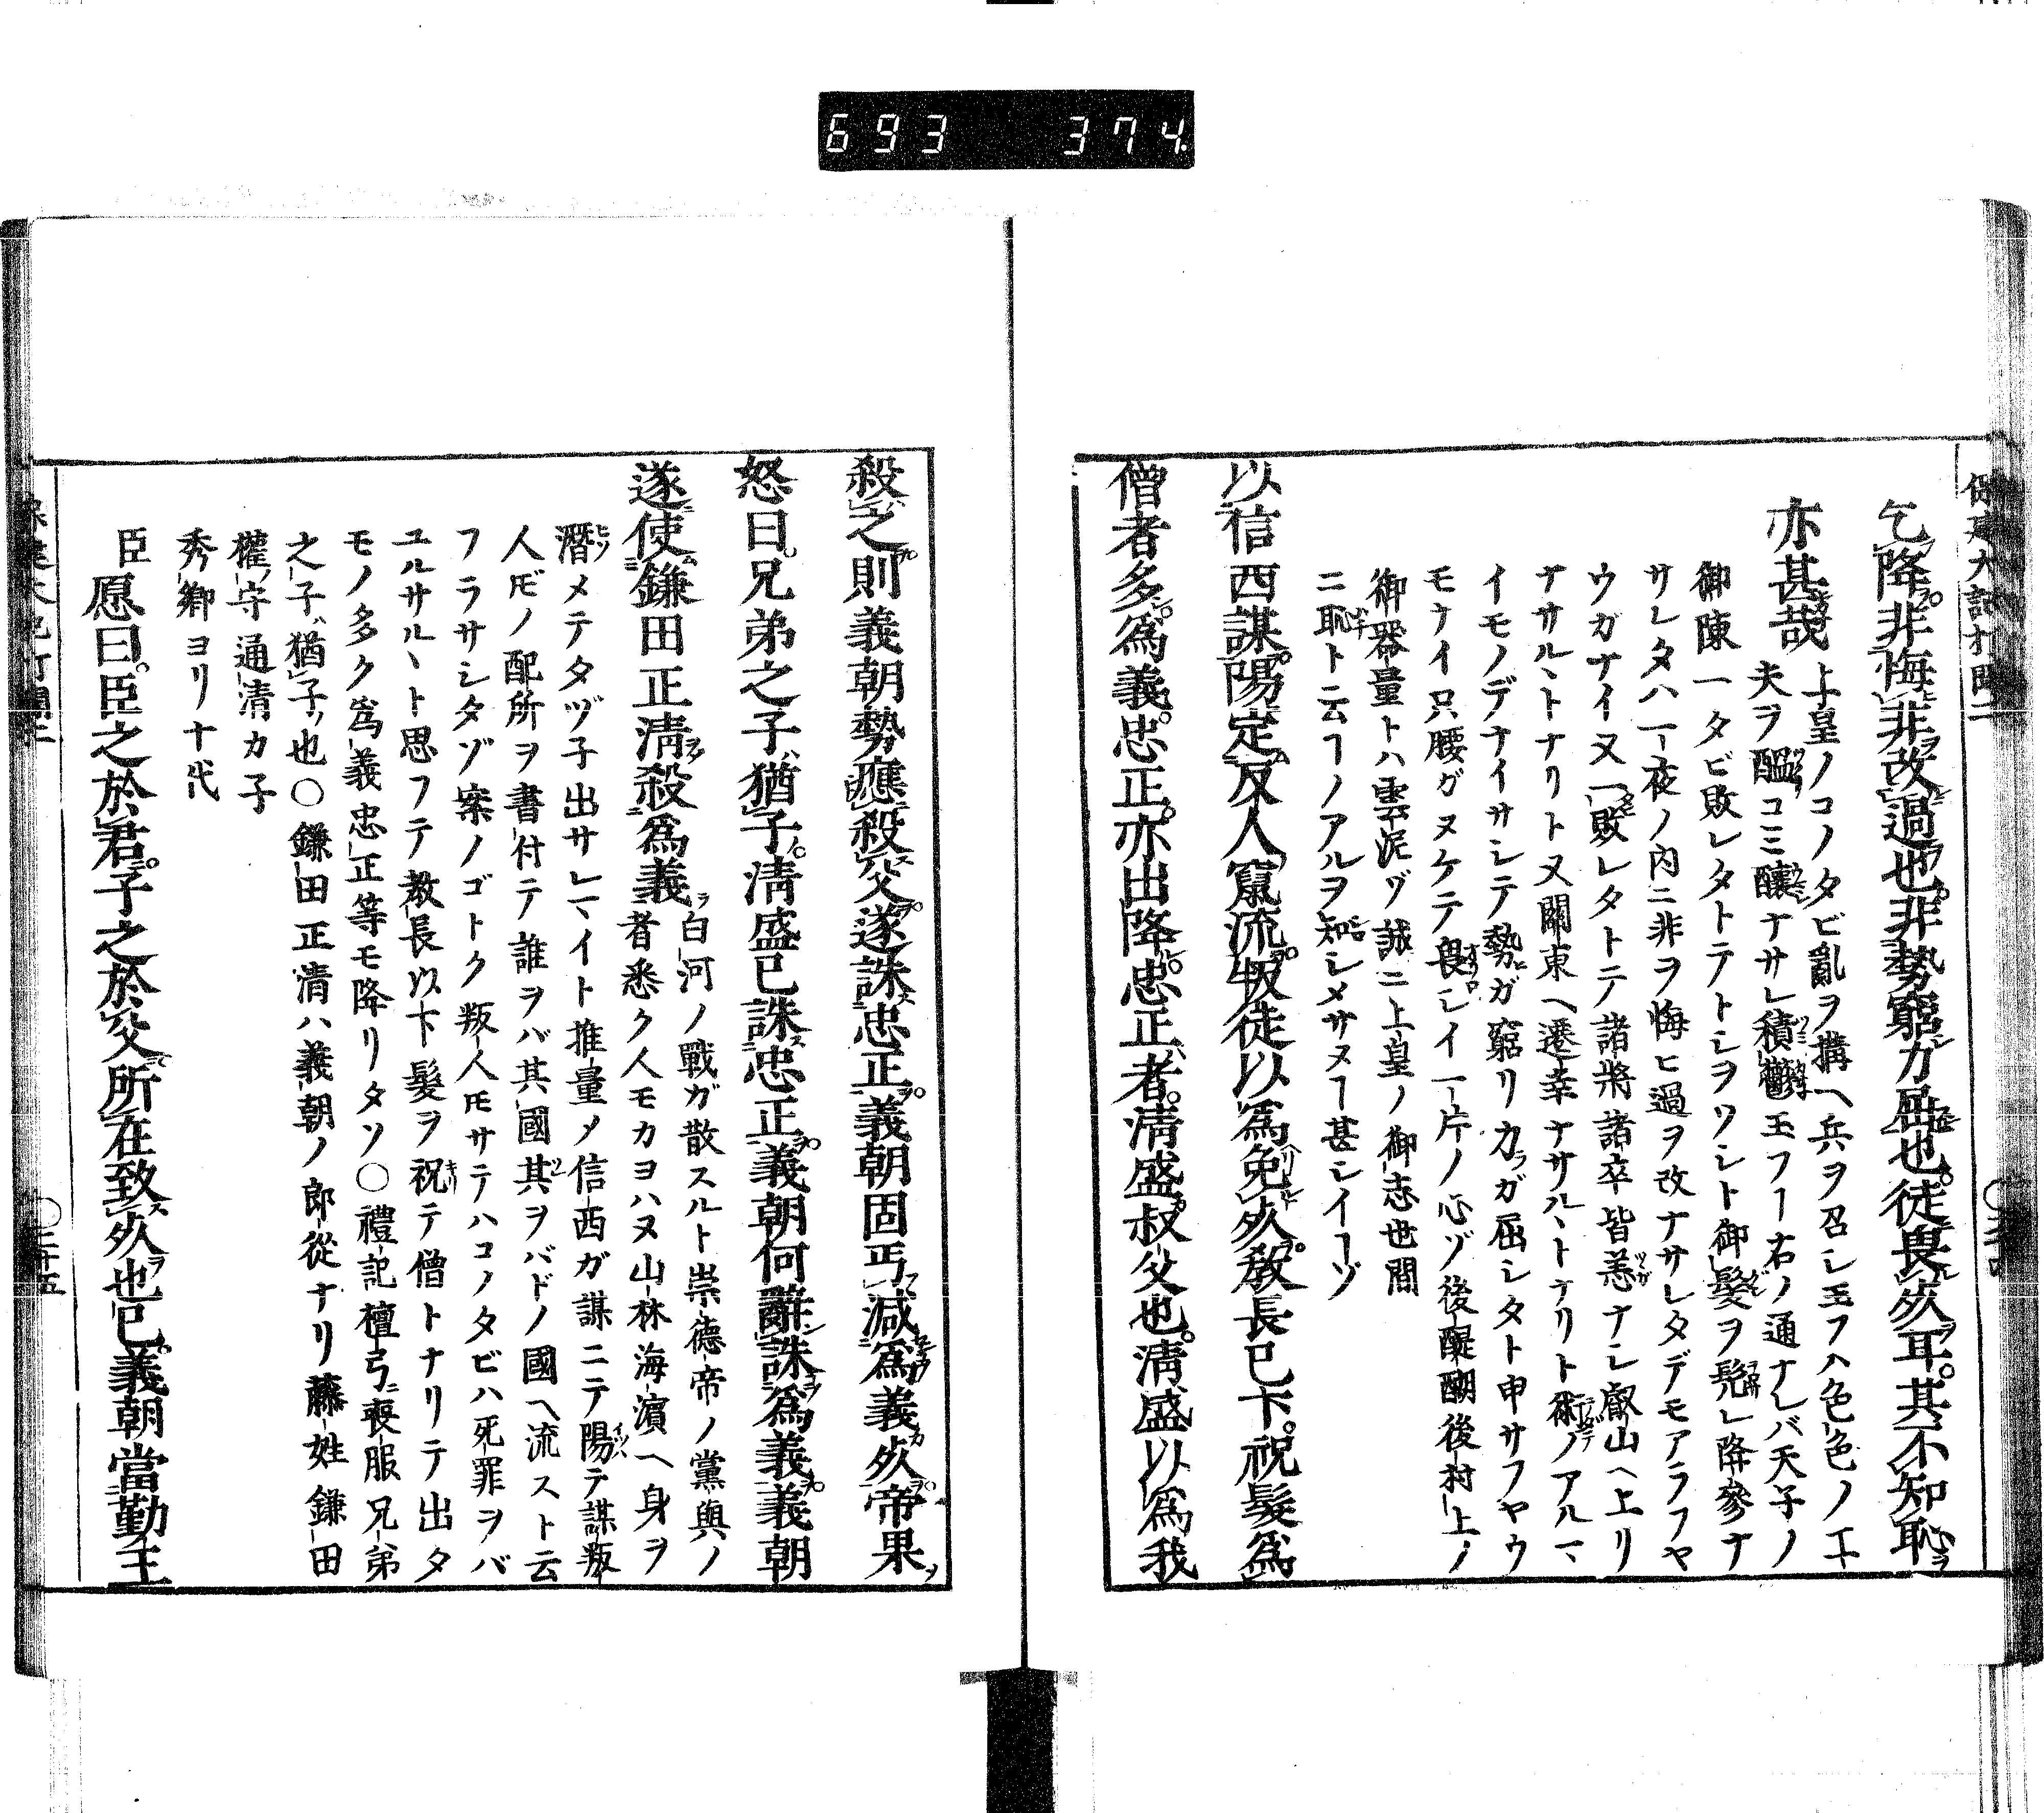 693 374
乞降。非悔非改過也。非勢窮力屈也。徒畏死耳。其不知恥
亦甚哉
上皇ノコノタビ亂ヲ搆ヘ兵ヲ召シ玉フハ色色ノ工
夫ヲ醞コミ釀ナサレ積鬱玉フー右ノ通ナレバ天子ノ
御陳一タビ敗レタトテトシヲワシト御髮ヲ髡レ降參ナ
サレタハ一夜ノ内ニ非ヲ悔ヒ過ヲ改ナサレタデモアラフヤ
ウガナイ又一敗レタトテ諸將諸卒皆恙ナシ叡山ヘ上リ
ナサルヽトナリト又關東ヘ遷幸ナサルヽトナリト術ノアルヽ
イモノデナイサシテ勢ガ窮リ力ラガ屈シタト申サフヤウ
モナイ只腰ガヌケテ畏シイ一片ノ心ゾ後醍醐後村上ノ
御器量トハ雲泥ゾ誠ニ上皇ノ御志世間
ニ恥ト云フーノアルヲ知シメサヌー甚シイーゾ
以信西謀。陽定反人竄流。叛徒以爲免死。教長已下。祝髮爲
僧者多。爲義。忠正。亦出降。忠正者。淸盛叔父也。淸盛以爲我
殺之則義朝勢應殺父。遂誅忠正。義朝固丐減爲義死。帝果
怒曰。兄弟之子猶子。淸盛已誅忠正。義朝何辭誅爲義。義朝
遂使鎌田正淸殺爲義
白河ノ戰ガ散スルト崇德帝ノ黨與ノ
者悉ク人モカヨハヌ山林海濱ヘ身ヲ
潛メテタヅ子出サレヽイト推量メ信西ガ謀ニテ陽テ謀叛
人𪜈ノ配所ヲ書付テ誰ヲバ其國其ヲバドノ國ヘ流スト云
フラサシタゾ案ノゴトク叛人𪜈サテハコノタビハ死罪ヲバ
ユルサルヽト思フテ教長以下髮ヲ祝テ僧トナリテ出タ
モノ多ク爲義忠正等モ降リタソ〇禮記檀弓ニ喪服兄弟
之子猶子也〇鎌田正淸ハ義朝ノ郎從ナリ藤姓鎌田
權守通淸カ子
秀鄕ヨリ十代
臣愿曰。臣之於君。子之於父。所在致死也已。義朝當勤王